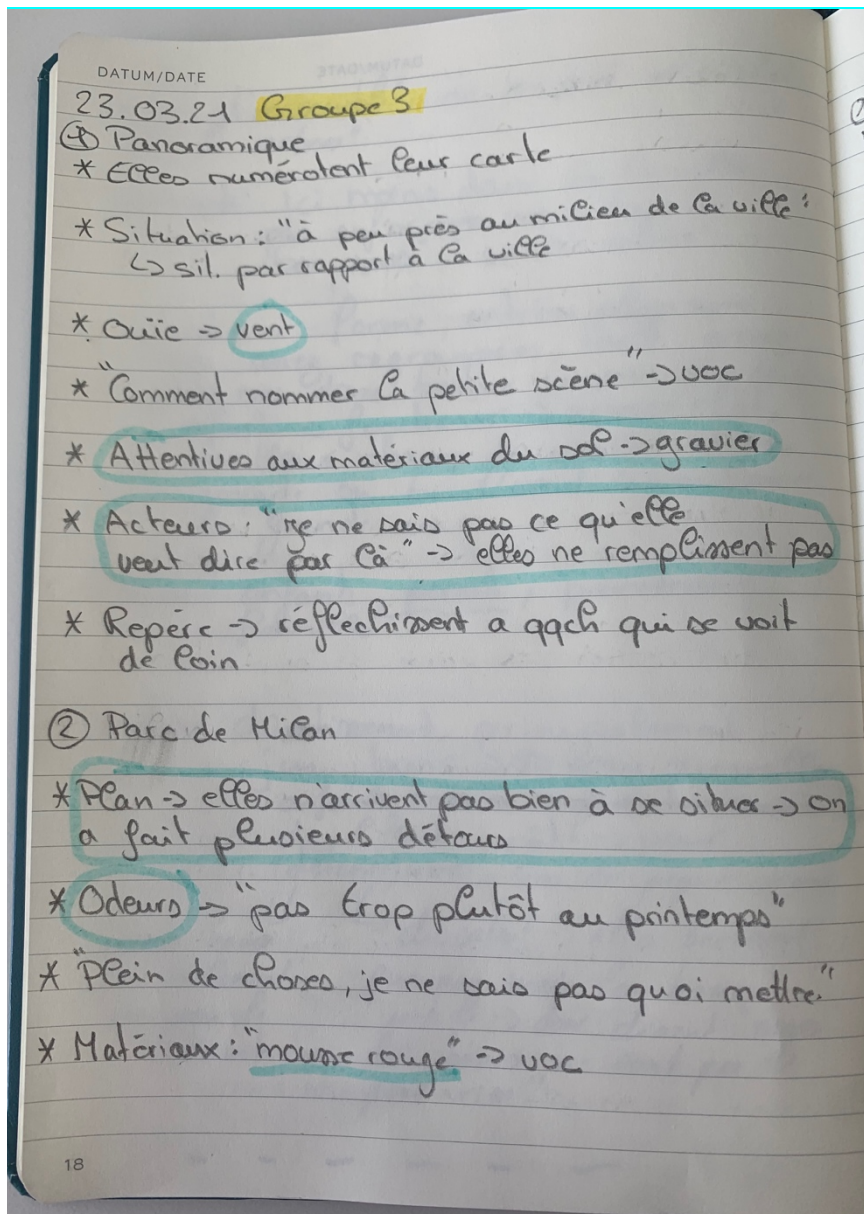 DATUM/DATE
23.03.21 Groupe 3
① Panoramique
* Elles numérotent leur carte
* Situation : "à peu près au milieu de la ville"
↳ sit. par rapport à la ville
* Ouïe → vent
* "Comment nommer la petite scène" → voc
* Attentives aux matériaux du sol → gravier
* Acteurs : "je ne sais pas ce qu'elle
veut dire par là" → elles ne remplissent pas
* Repère → réflechissent a qqch qui se voit
de loin
② Parc de Milan
* Plan → elles n'arrivent pas bien à se situer → on
a fait plusieurs détours
* Odeurs → "pas trop plutôt au printemps"
* "Plein de choses, je ne sais pas quoi mettre."
* Matériaux : "mousse rouge" → voc
18